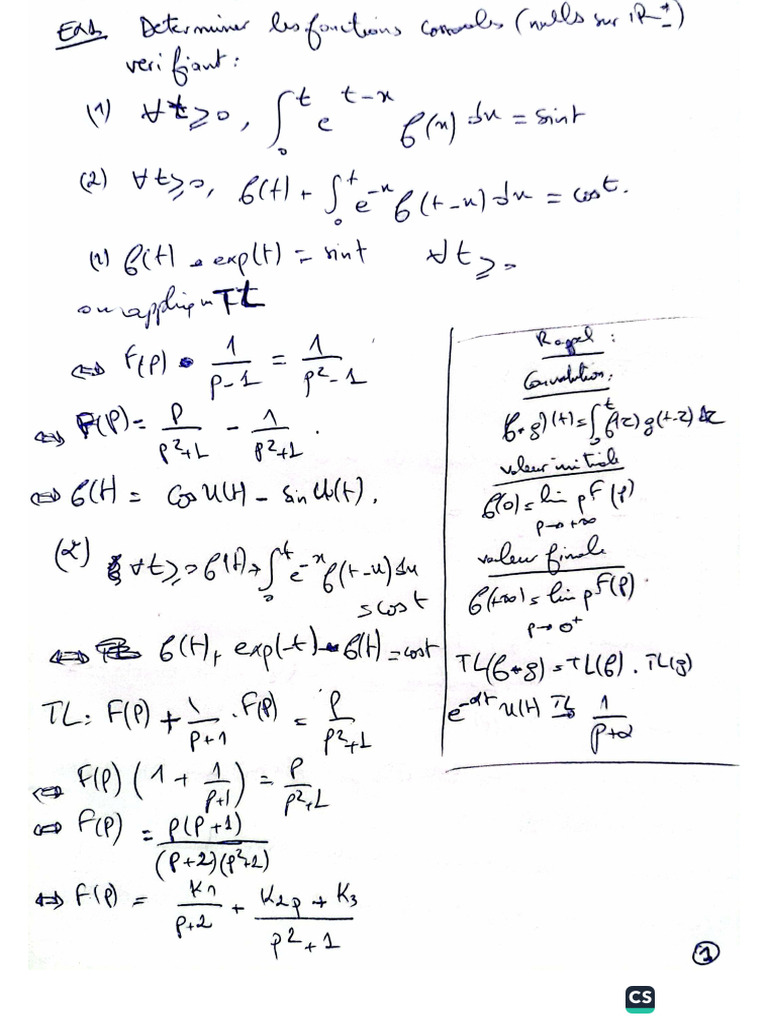 Ex1 Determiner les fonctions causales (nulls sur IR*-)
verifiant :
(1) ∀t≥0, ∫₀ᵗ e^(t-x) f(x) dx = sint
(2) ∀t≥0, f(t) + ∫₀ᵗ e^(-x) f(t-x) dx = cost.
(1) f(t) * exp(t) = sint ∀t≥0
on applique TL
⇔ F(p) • 1/(p-1) = 1/(p²-1)
⇔ F(p) = p/(p²+1) - 1/(p²+1).
⇔ f(t) = cos u(t) - sin u(t).
(2) ∀t≥0 f(t) + ∫₀ᵗ e^(-x) f(t-x) dx
= cost
⇔ f(t) + exp(-t) * f(t) = cost
TL: F(p) + 1/(p+1) . F(p) = p/(p²+1)
⇔ F(p) (1 + 1/(p+1)) = p/(p²+1)
⇔ F(p) = p(p+1)/((p+2)(p²+1))
⇔ F(p) = K1/(p+2) + (K2p + K3)/(p²+1)
Rappel :
Convolution :
f*g)(t) = ∫₀ᵗ f(z) g(t-z) dz
valeur initiale
f(0) = lim pF(p)
p→+∞
valeur finale
f(+∞) = lim pF(p).
p→0⁺
TL(f*g) = TL(f) . TL(g)
e^(-αt) u(t) TL→ 1/(p+α)
1
CS